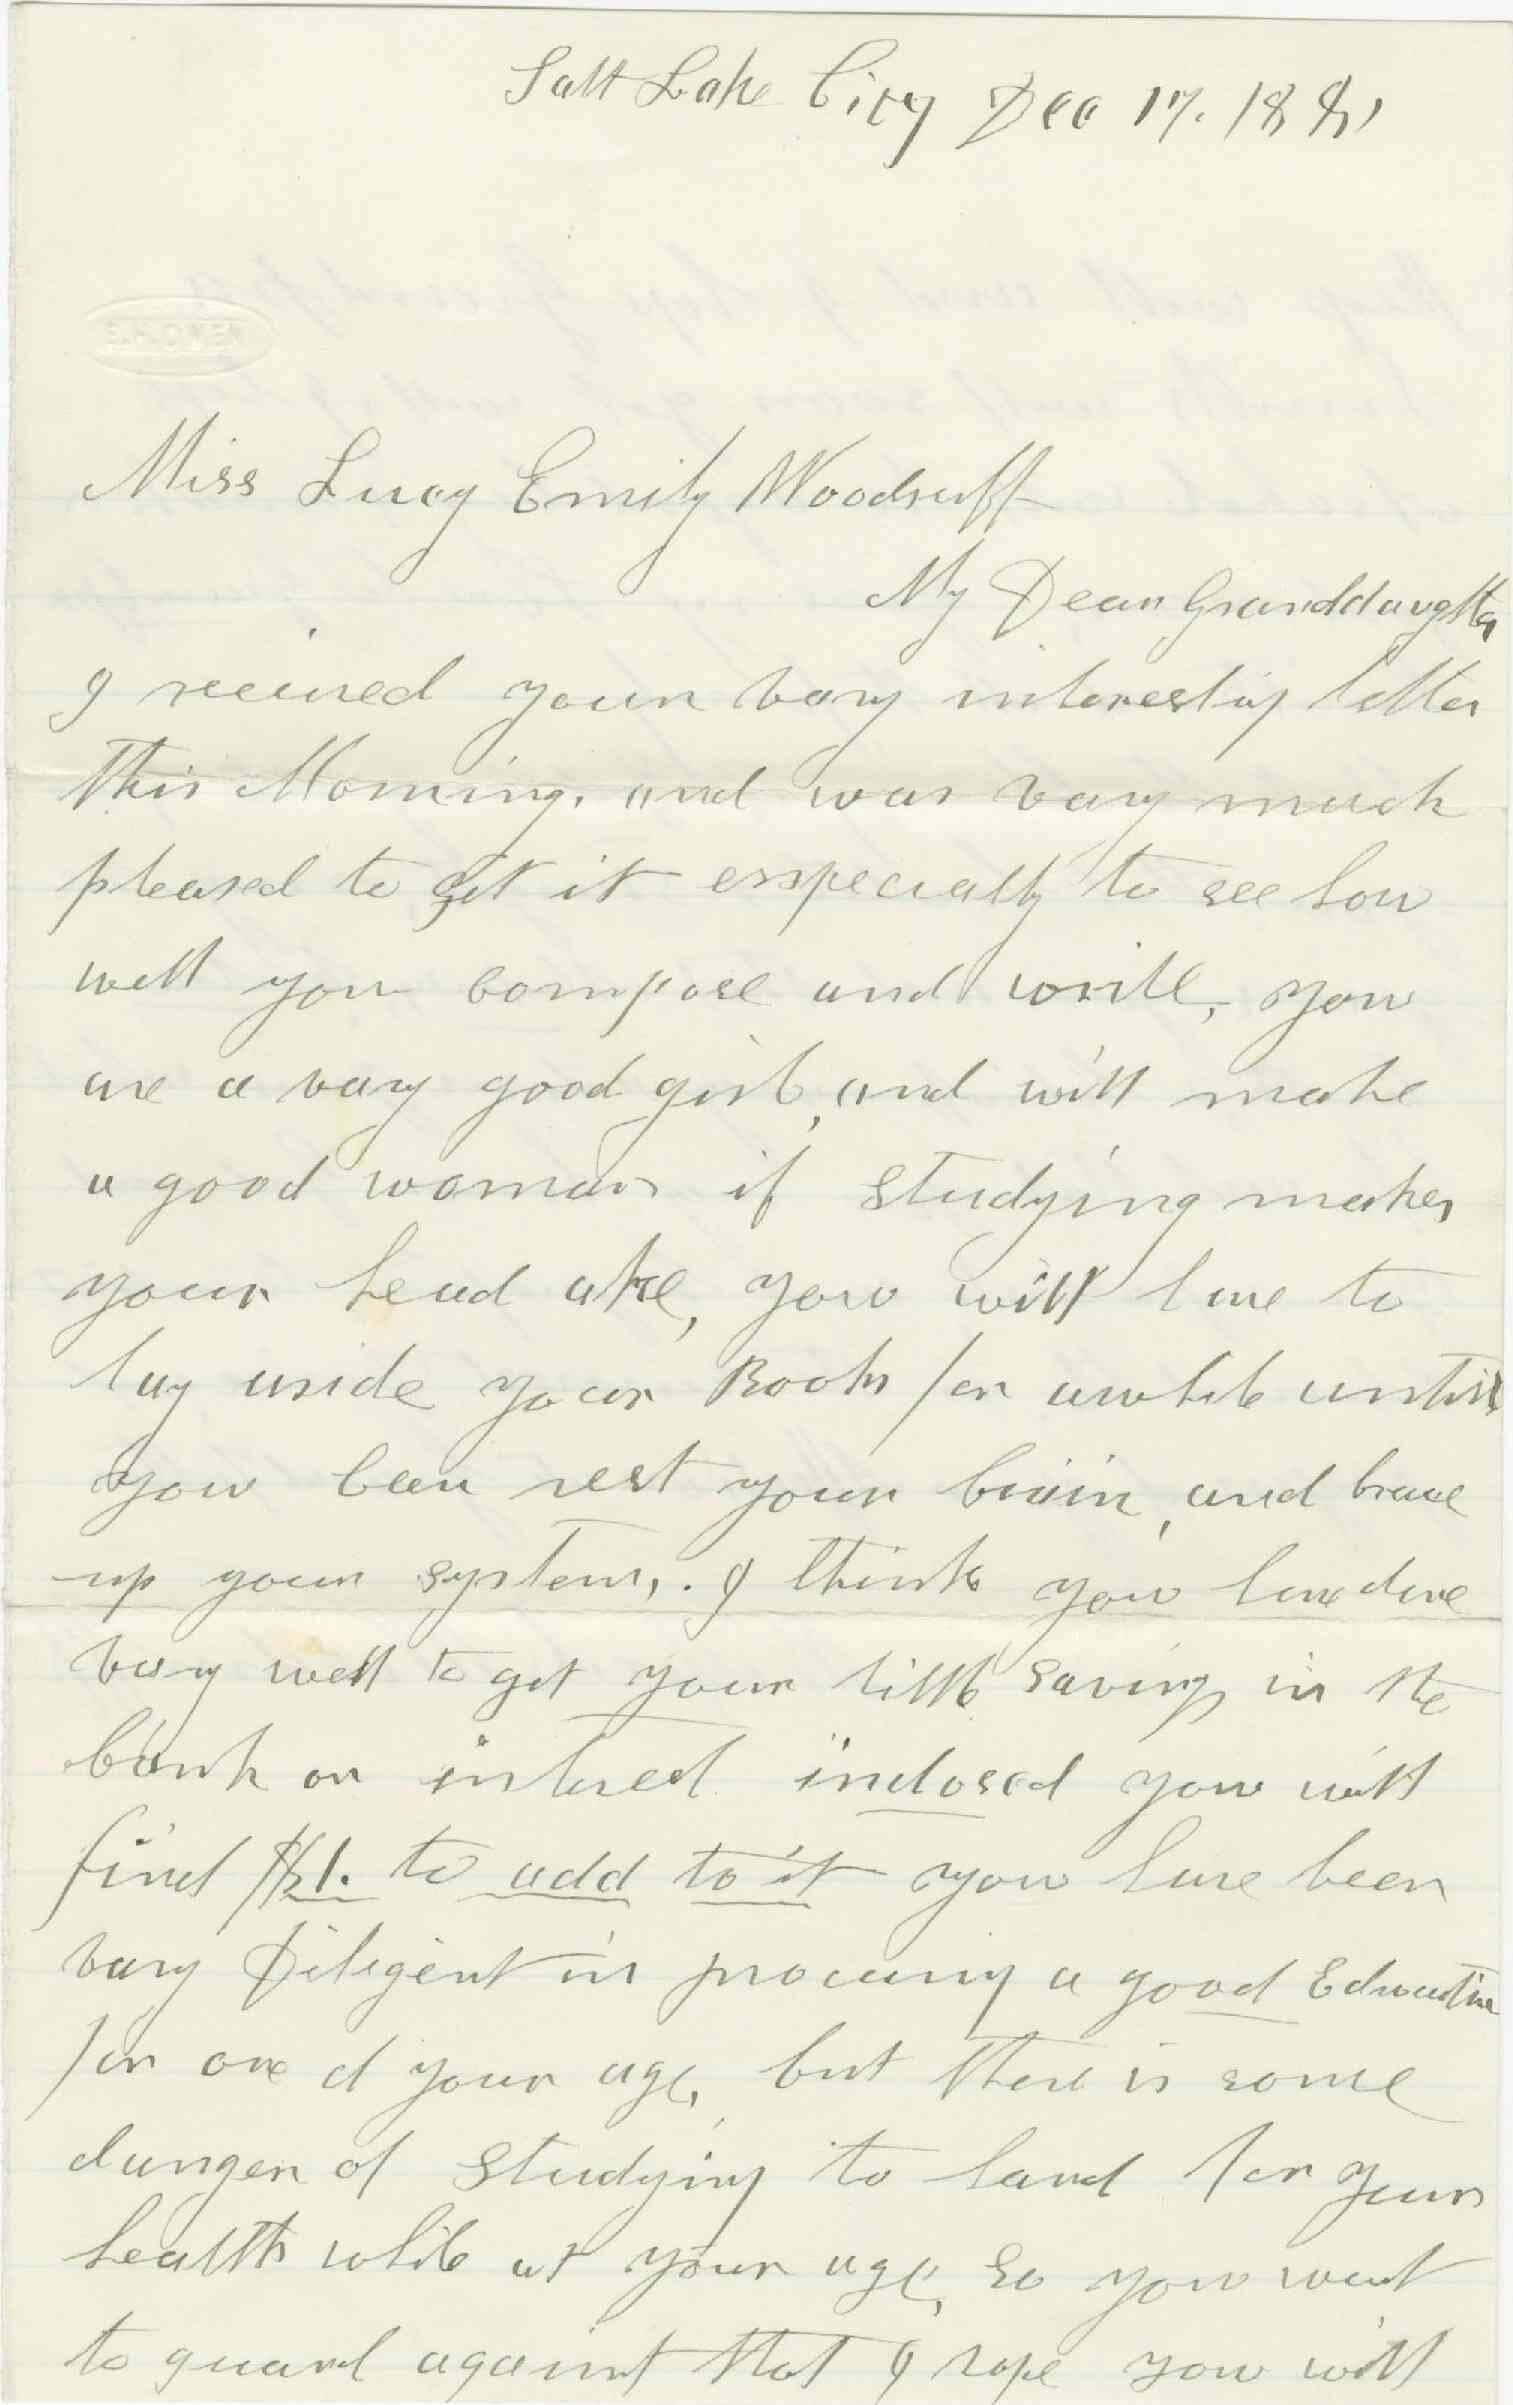 Salt Lake City Dec 17. 1881
E. H. OWEN
Miss Lucy Emily Woodruff
My Dear Granddaughter
I received your vary interesting letter
this Morning. and was vary much
pleased to get it esspecially to see how
well you compose and write, you
are a vary good girl, and will make
a good woman if studying makes
your head ake, you will have to
lay aside your Books for awhile untill
you can rest your brain, and brace
up your system,. I think you have done
vary well to get your little savings in the
bank on interest inclosed you will
find $1. to add to it you have been
vary Diligent in procuring a good Education
for one of your age, but there is some
danger of studying to hard for your
health while at your age, so you want
to guard against that I hope you will